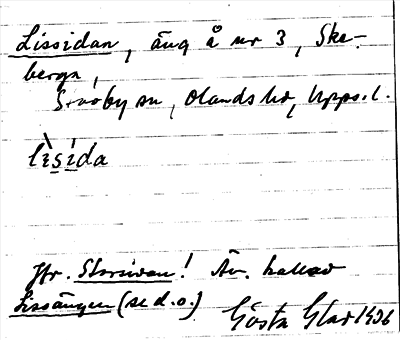 Lissidan, äng å nr 3, Ske-
berga,
Snröby sn, Olands hd, Upps. l.
lìsída
Jfr. Storsidan! Äv. kallad
Lissängen (se d. o.)
Gösta Glad 1936